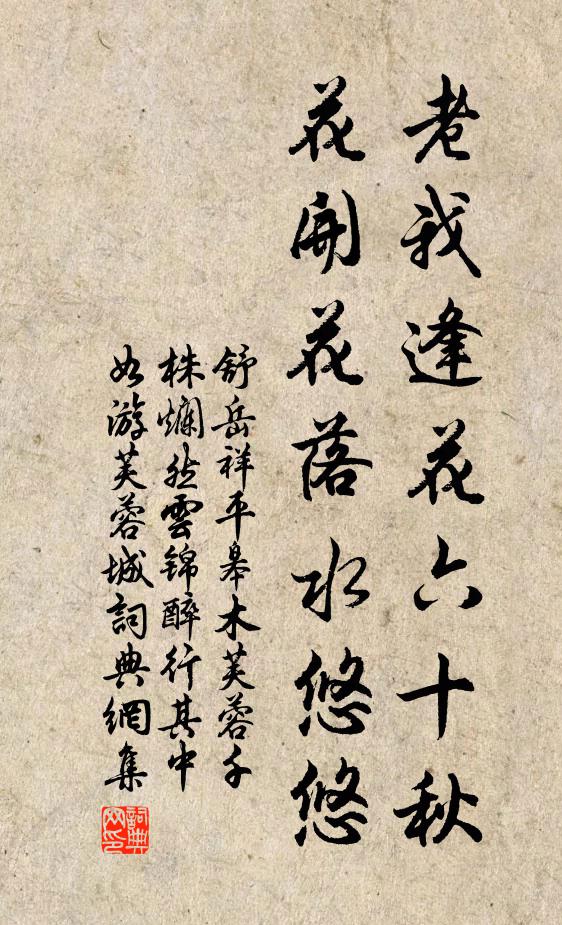 老我逢花六十秋
花開花落水悠悠
舒岳祥平皋木芙蓉千
株爛然雲錦醉行其中
如游芙蓉城詞典網集
詞典
网印